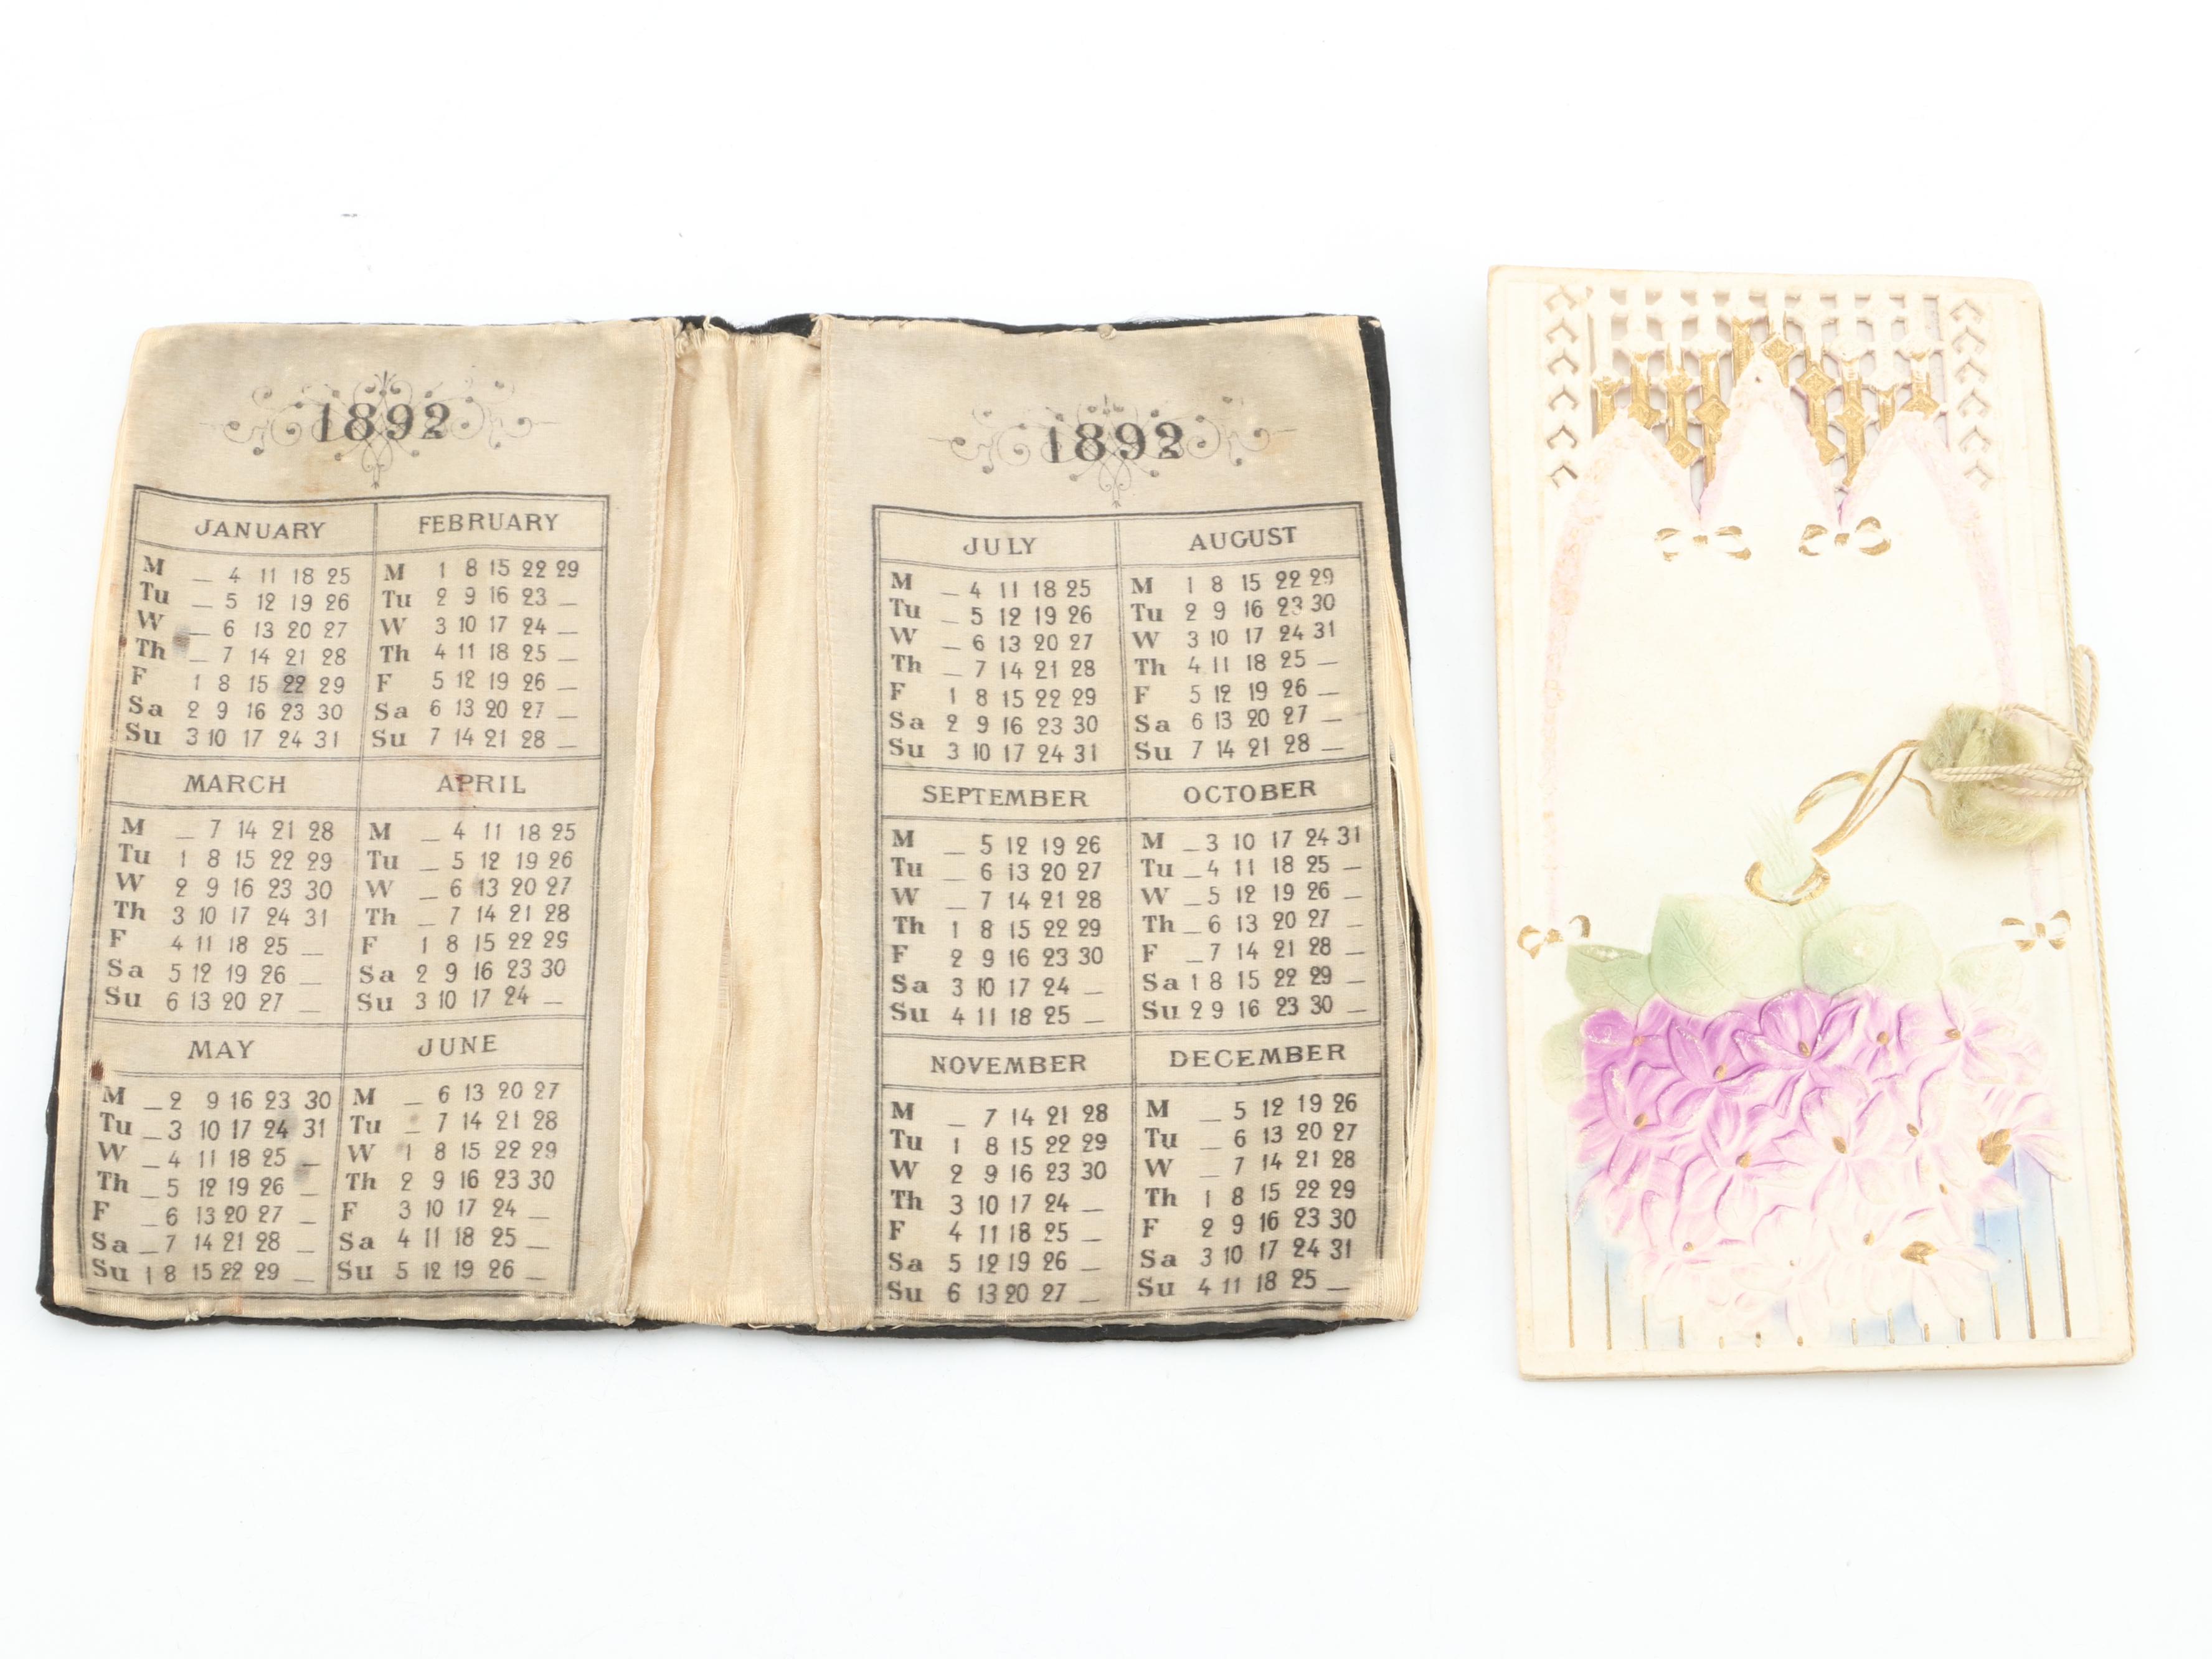 1892
JANUARY FEBRUARY
M _ 4 11 18 25 M 1 8 15 22 29
Tu _ 5 12 19 26 Tu 2 9 16 23 _
W _ 6 13 20 27 W 3 10 17 24 _
Th _ 7 14 21 28 Th 4 11 18 25 _
F 1 8 15 22 29 F 5 12 19 26 _
Sa 2 9 16 23 30 Sa 6 13 20 27 _
Su 3 10 17 24 31 Su 7 14 21 28 _
MARCH APRIL
M _ 7 14 21 28 M _ 4 11 18 25
Tu 1 8 15 22 29 Tu _ 5 12 19 26
W 2 9 16 23 30 W _ 6 13 20 27
Th 3 10 17 24 31 Th _ 7 14 21 28
F 4 11 18 25 _ F 1 8 15 22 29
Sa 5 12 19 26 _ Sa 2 9 16 23 30
Su 6 13 20 27 _ Su 3 10 17 24 _
MAY JUNE
M _ 2 9 16 23 30 M _ 6 13 20 27
Tu _ 3 10 17 24 31 Tu _ 7 14 21 28
W _ 4 11 18 25 _ W 1 8 15 22 29
Th _ 5 12 19 26 _ Th 2 9 16 23 30
F _ 6 13 20 27 _ F 3 10 17 24 _
Sa _ 7 14 21 28 _ Sa 4 11 18 25 _
Su 1 8 15 22 29 _ Su 5 12 19 26 _
1892
JULY AUGUST
M _ 4 11 18 25 M 1 8 15 22 29
Tu _ 5 12 19 26 Tu 2 9 16 23 30
W _ 6 13 20 27 W 3 10 17 24 31
Th _ 7 14 21 28 Th 4 11 18 25 _
F 1 8 15 22 29 F 5 12 19 26 _
Sa 2 9 16 23 30 Sa 6 13 20 27 _
Su 3 10 17 24 31 Su 7 14 21 28 _
SEPTEMBER OCTOBER
M _ 5 12 19 26 M _ 3 10 17 24 31
Tu _ 6 13 20 27 Tu _ 4 11 18 25 _
W _ 7 14 21 28 W _ 5 12 19 26 _
Th 1 8 15 22 29 Th _ 6 13 20 27 _
F 2 9 16 23 30 F _ 7 14 21 28 _
Sa 3 10 17 24 _ Sa 1 8 15 22 29 _
Su 4 11 18 25 _ Su 2 9 16 23 30 _
NOVEMBER DECEMBER
M _ 7 14 21 28 M _ 5 12 19 26
Tu 1 8 15 22 29 Tu _ 6 13 20 27
W 2 9 16 23 30 W _ 7 14 21 28
Th 3 10 17 24 _ Th 1 8 15 22 29
F 4 11 18 25 _ F 2 9 16 23 30
Sa 5 12 19 26 _ Sa 3 10 17 24 31
Su 6 13 20 27 _ Su 4 11 18 25 _